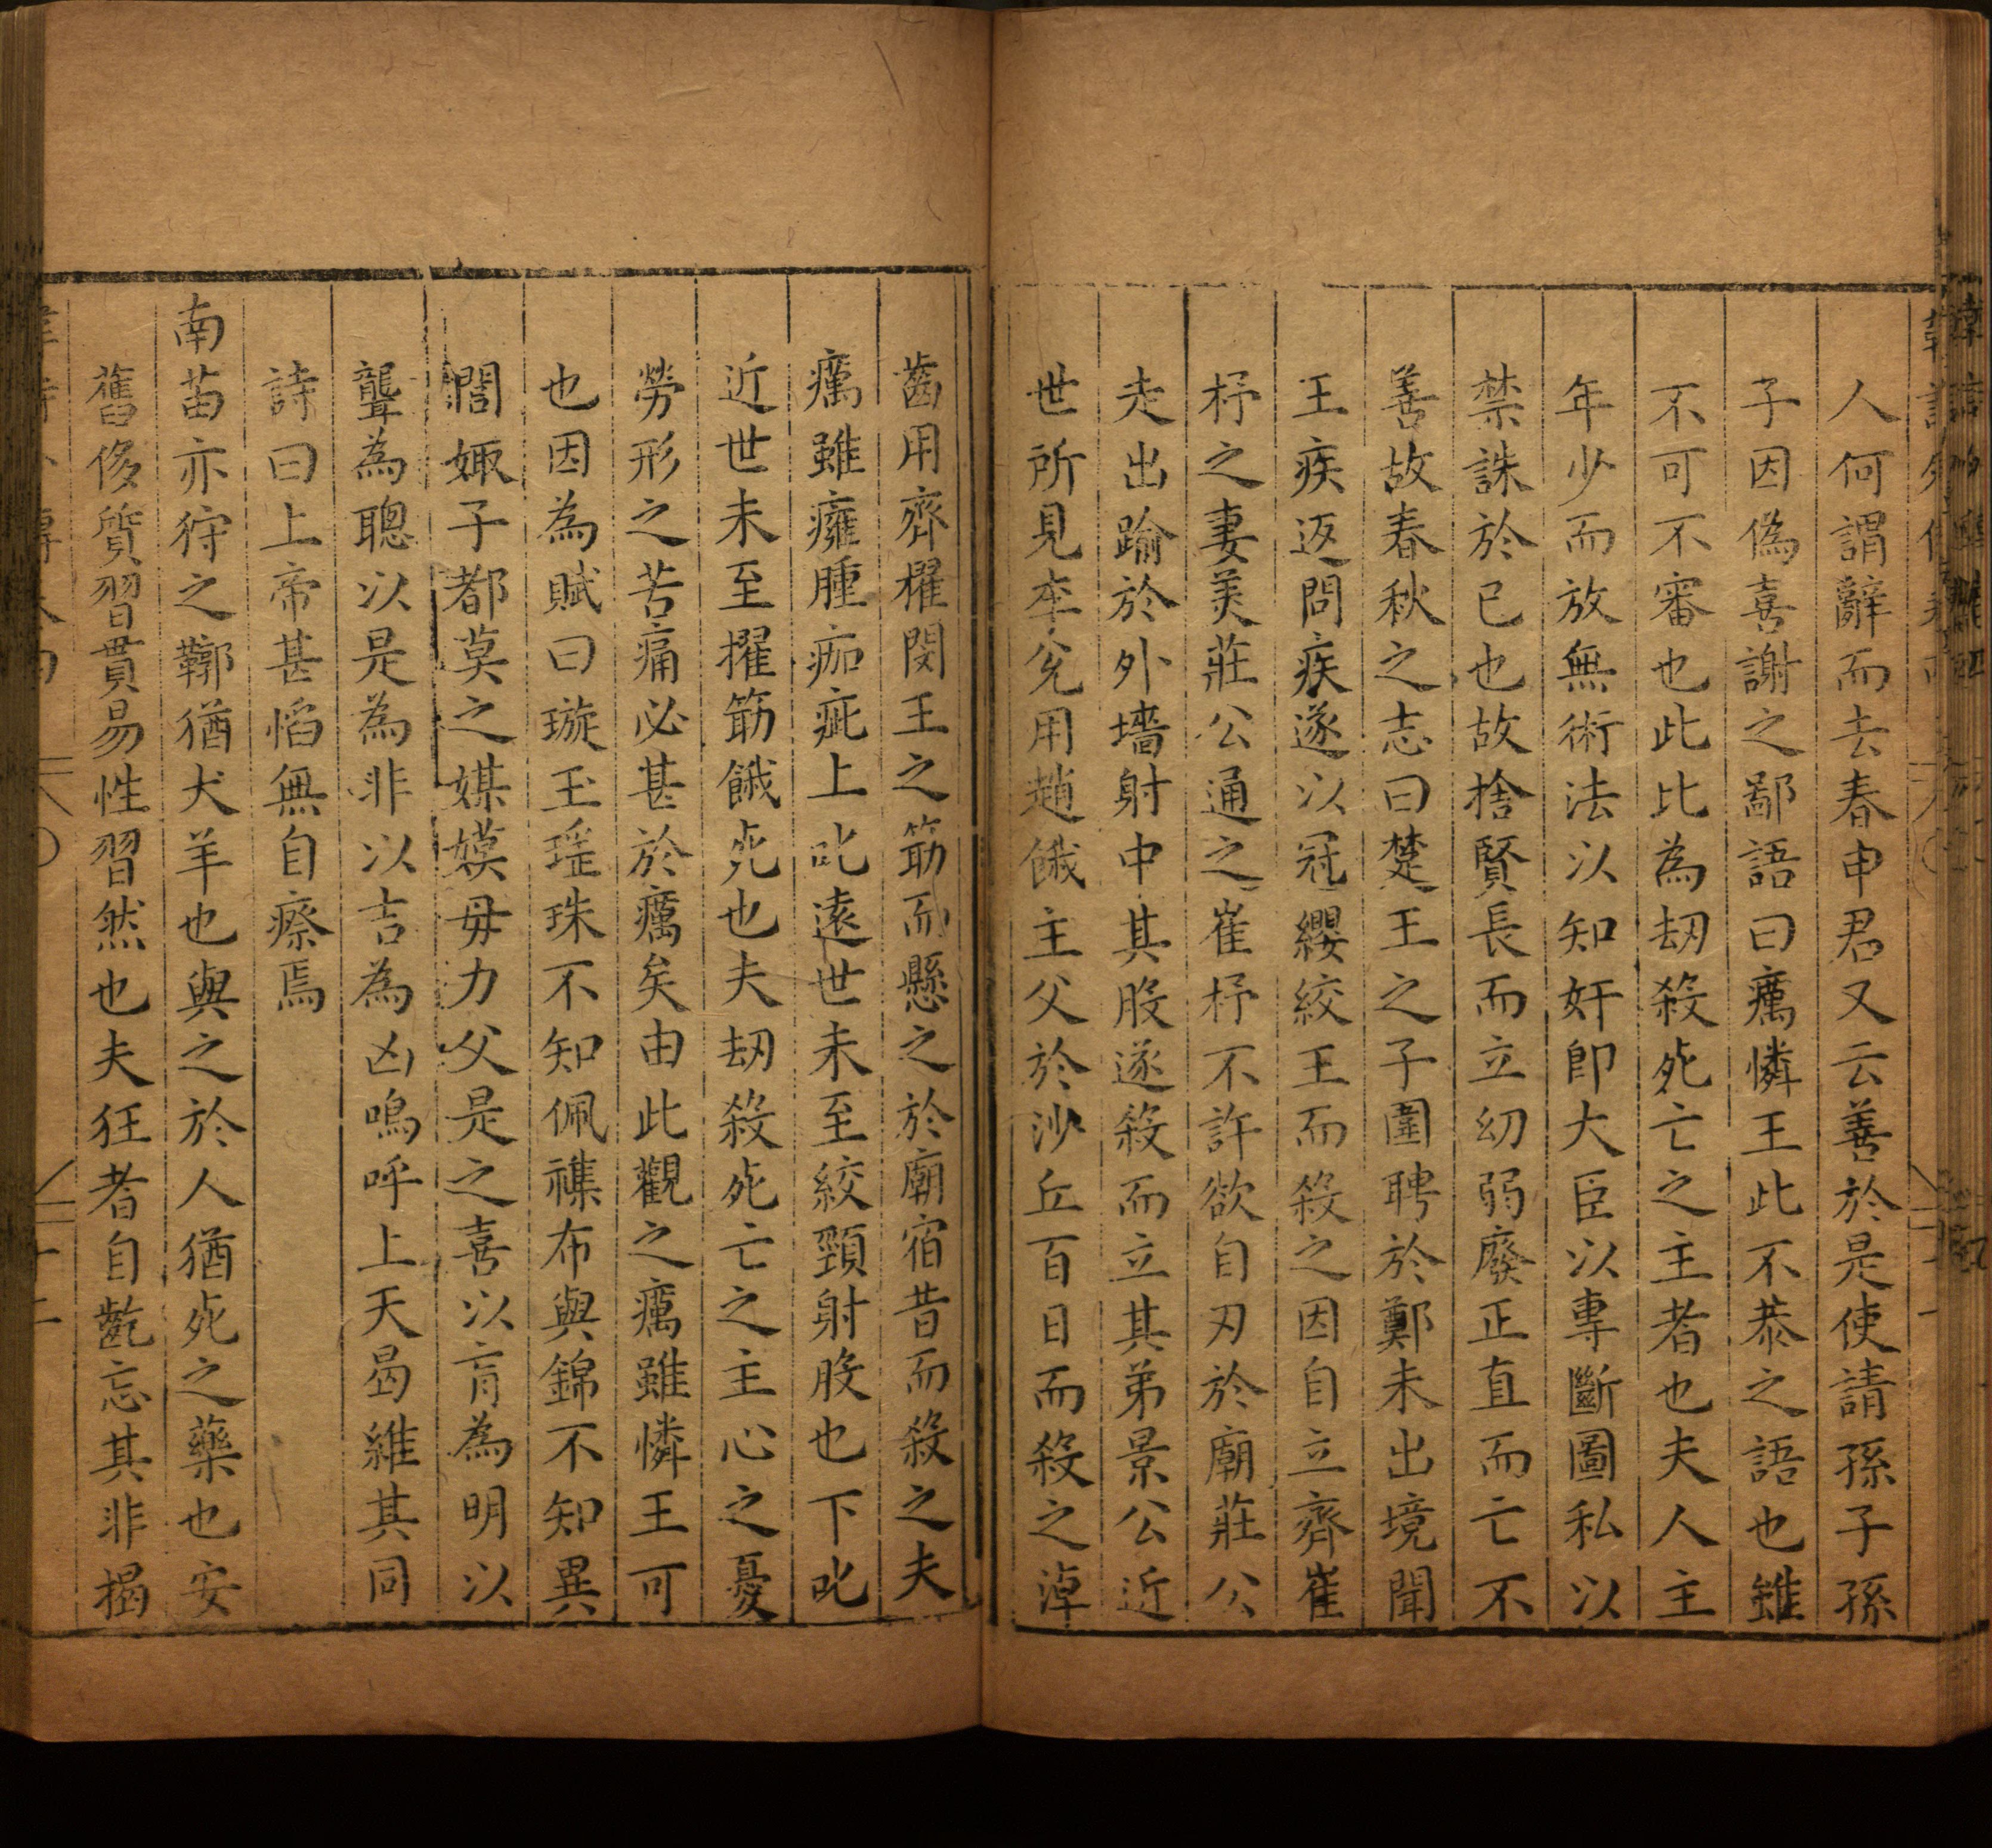 人何謂辭而去春申君又云善於是使請孫子孫
子因偽喜謝之鄙語曰癘憐王此不恭之語也雖
不可不審也此比為刼殺死亡之主者也夫人主
年少而放無術法以知奸即大臣以專斷圖私以
禁誅於已也故捨賢長而立幼弱廢正直而亡不
善故春秋之志曰楚王之子圍聘於鄭未出境聞
王疾返問疾遂以冠纓絞王而殺之因自立齊崔
杼之妻美莊公通之崔杼不許欲自刃於廟莊公
走出踰於外墻射中其股遂殺而立其弟景公近
世所見李兌用趙餓主父於沙丘百日而殺之淖
齒用齊擢閔王之筋而懸之於廟宿昔而殺之夫
癘雖癰腫痂疵上比遠世未至絞頸射股也下比
近世未至擢筋餓死也夫刼殺死亡之主心之憂
勞形之苦痛必甚於癘矣由此觀之癘雖憐王可
也因為賦曰璇玉瑤珠不知佩襍布與錦不知異
閭娵子都莫之媒嫫毋力父是之喜以盲為明以
聾為聰以是為非以吉為凶嗚呼上天曷維其同
詩曰上帝甚慆無自瘵焉
南苗亦狩之鞹猶犬羊也與之於人猶死之藥也安
舊侈質習貫易性習然也夫狂者自齕忘其非揭